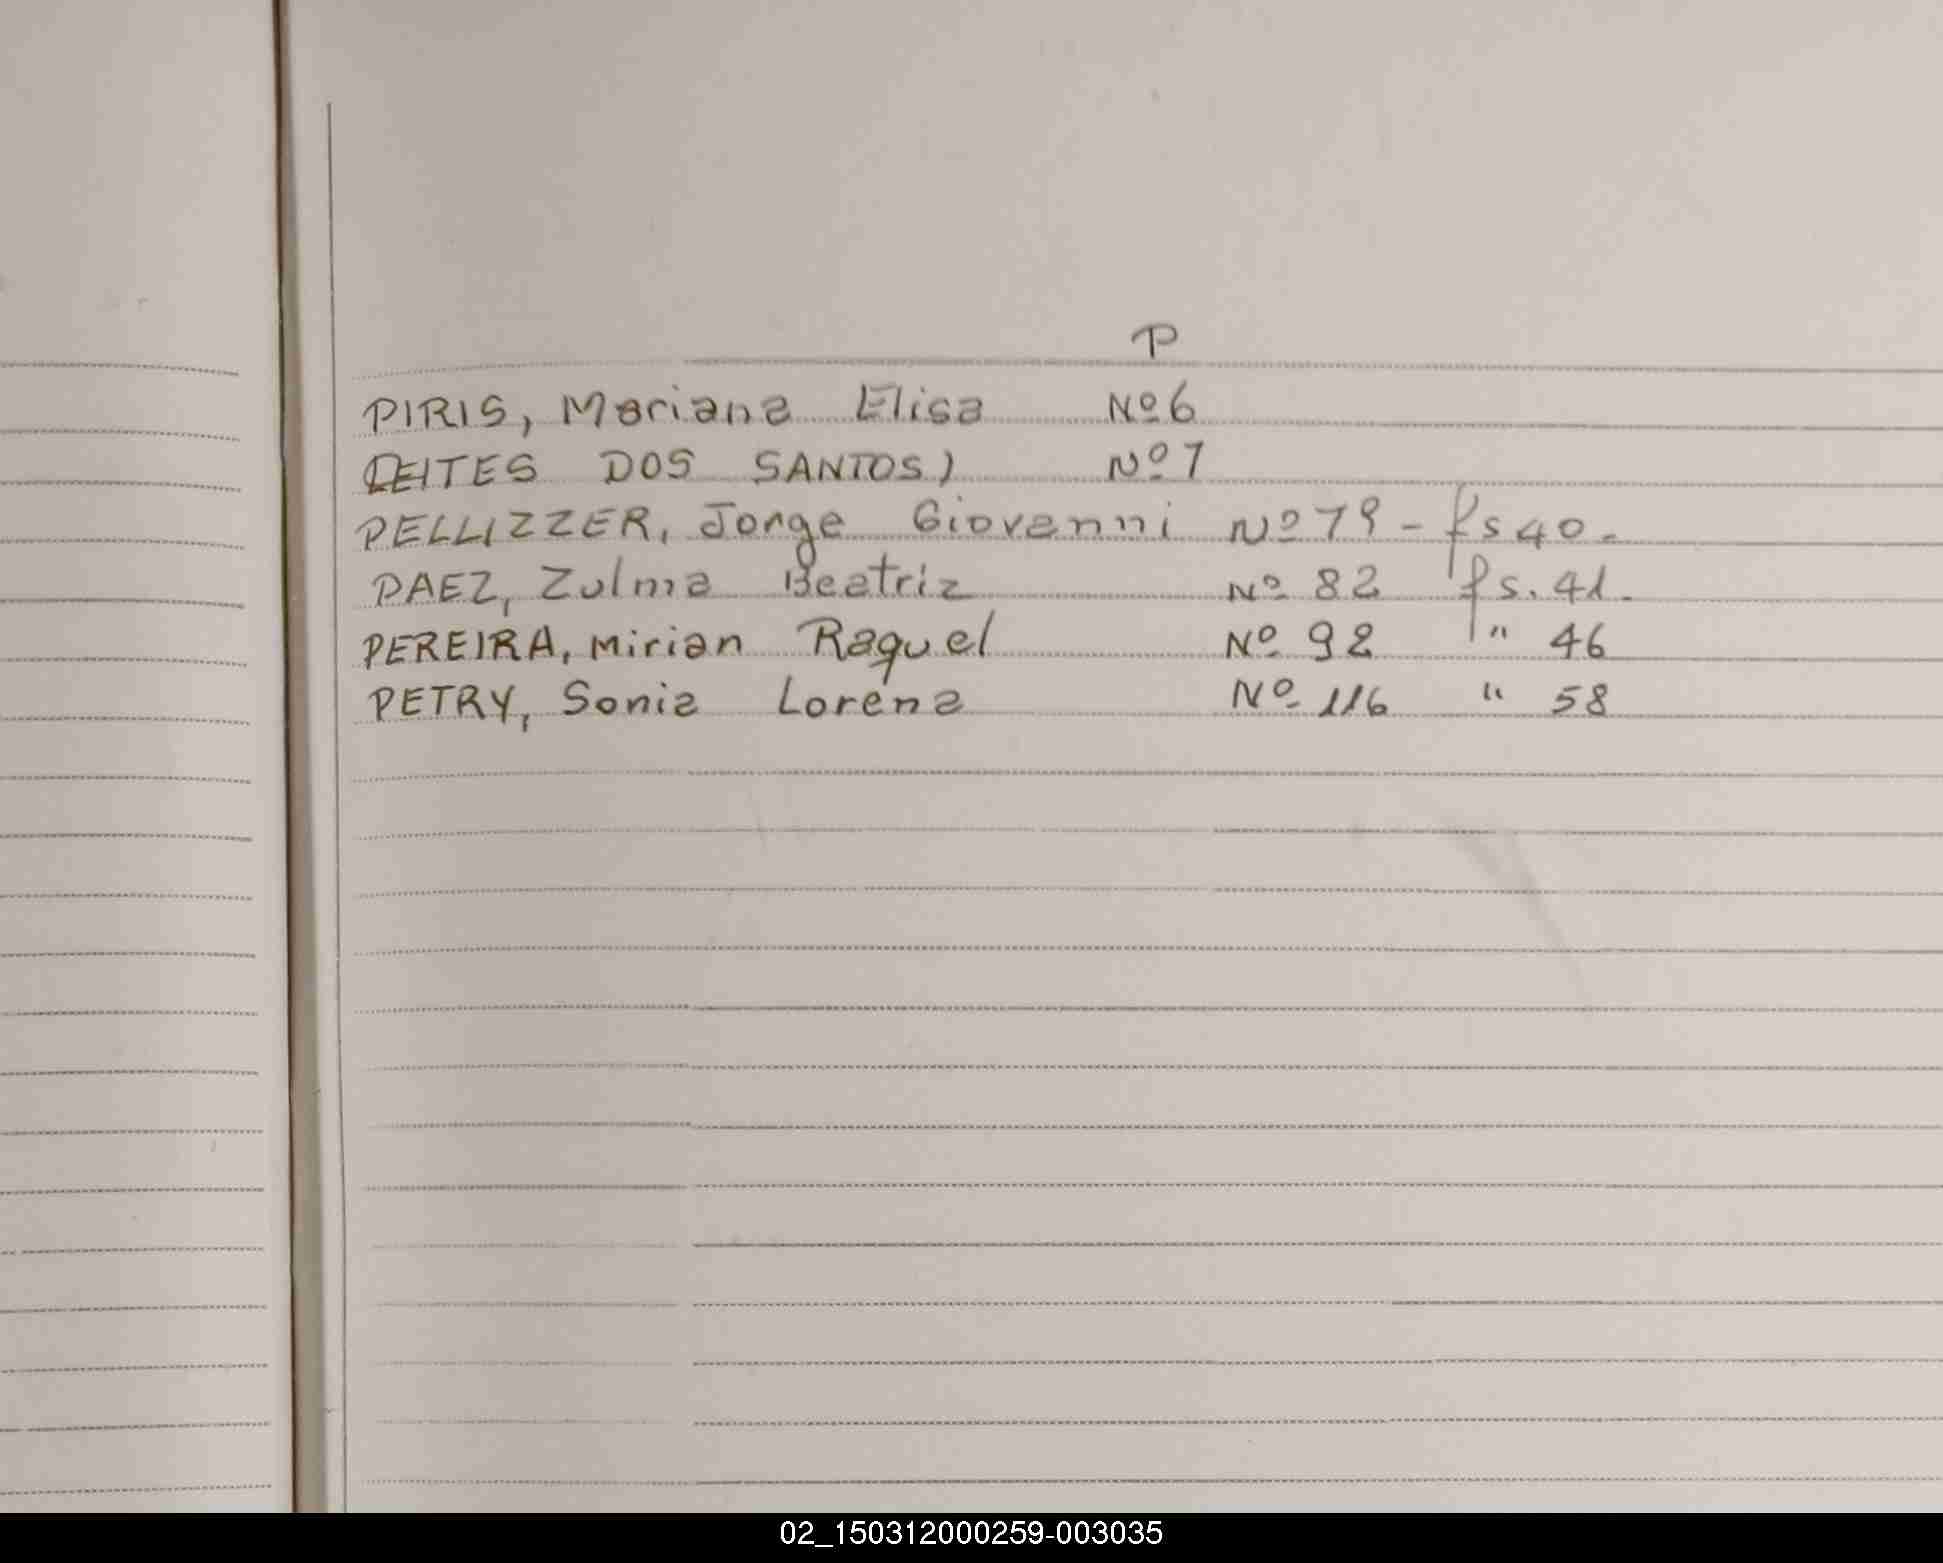 P
PIRIS, Mariana Elisa Nº 6
(LEITES DOS SANTOS) Nº 7
PELLIZZER, Jorge Giovanni Nº 79 - fs 40.
PAEZ, Zulma Beatriz Nº 82 fs. 41.
PEREIRA, Mirian Raquel Nº 92 " 46
PETRY, Sonia Lorena Nº 116 " 58
02_150312000259-003035